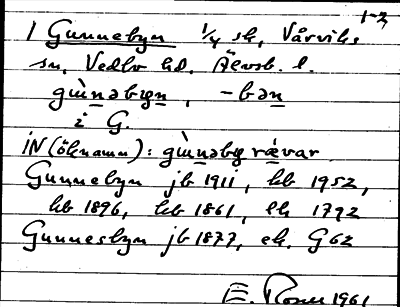 1-2
1 Gunnebyn 1/4 sk, Vårviks
sn, Vedbo hd, Älvsb. l.
gùnəbyn, -bən
i G.
iN (öknamn): gùnəby rǽvar
Gunnebyn jb 1911, kb 1952,
hb 1896, kb 1861, ek 1792
Gunnesbyn jb 1877, ek. G62
E. Rosell 1961